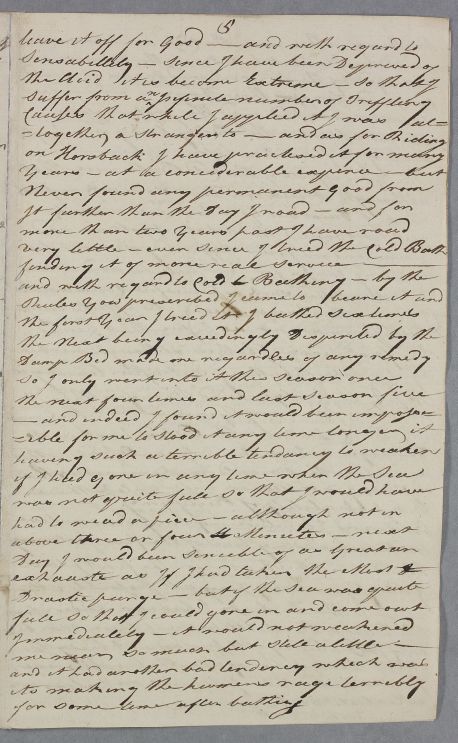 8
leave it off for Good — and with regard to
Sensabillity — since I have been Deprived of
the Acid it is become Extreme — so that I
Suffer from an Infinite number of Triffling
Causes that while I applied it I was al=
=together a Stranger to — and as for Riding
on Horsback I have practised it for many
Years — at a considerable expence — but
Never found any permanent Good from
It farther than the Day I road — and for
more than two Years past I have road
very little — ever since I tried the Cold Bath
finding it of more real service —
and with regard to Cold Bathing — by the
Rules You prescribed I came to beare it and
the first Year I tried it I bathed sex times
the Next being exceedingly Dispirited by the
Damp Bed made me regardles of any remedy
so I only went into it this season once
the next four times and last season five
— and indeed I found it would been imposs=
=ible for me to stood it any time longer it
having such a terrible tendancy to weaken
if I had gone in any time when the Sea
was not quite full so that I would have
had to wead a piece — although not in
above three or four Minutes — next
Day I would been sencible of as Great an
exhauste as If I had taken the Most
Drastic purge — but if the Sea was quite
full so that I could gone in and come out
Immediately — it would not weakened
me near so much but still a little —
and it had another bad tendency which was
its making the humers rage terribly
for some time after bathing